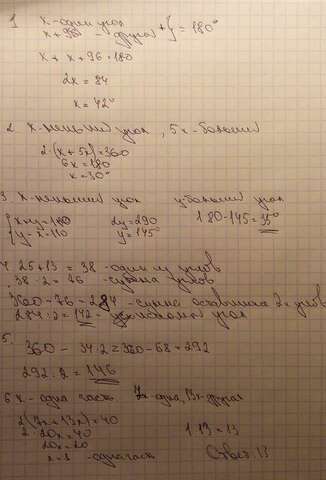 1 x - один угол
x + 96 - другой + } = 180°
x + x + 96 = 180
2x = 84
x = 42°
2. x - меньший угол, 5x - больший
2·(x + 5x) = 360
6x = 180
x = 30°
3. x - меньший угол y - больший угол
{ x+y=180 2y = 290 180-145 = 35°
y-x=110 y = 145°
4. 25+13 = 38 - один из углов
38·2 = 76 - сумма углов
360 - 76 = 284 - сумма оставшихся 2х углов
284:2 = 142 - угол
5.
360 - 34·2 = 360 - 68 = 292
292:2 = 146
6 x - одна часть 7x - одна, 13x - другая
2(7x + 13x) = 40
2·20x = 40 1·13 = 13
20x = 20
x = 1 - одна часть Ответ: 13